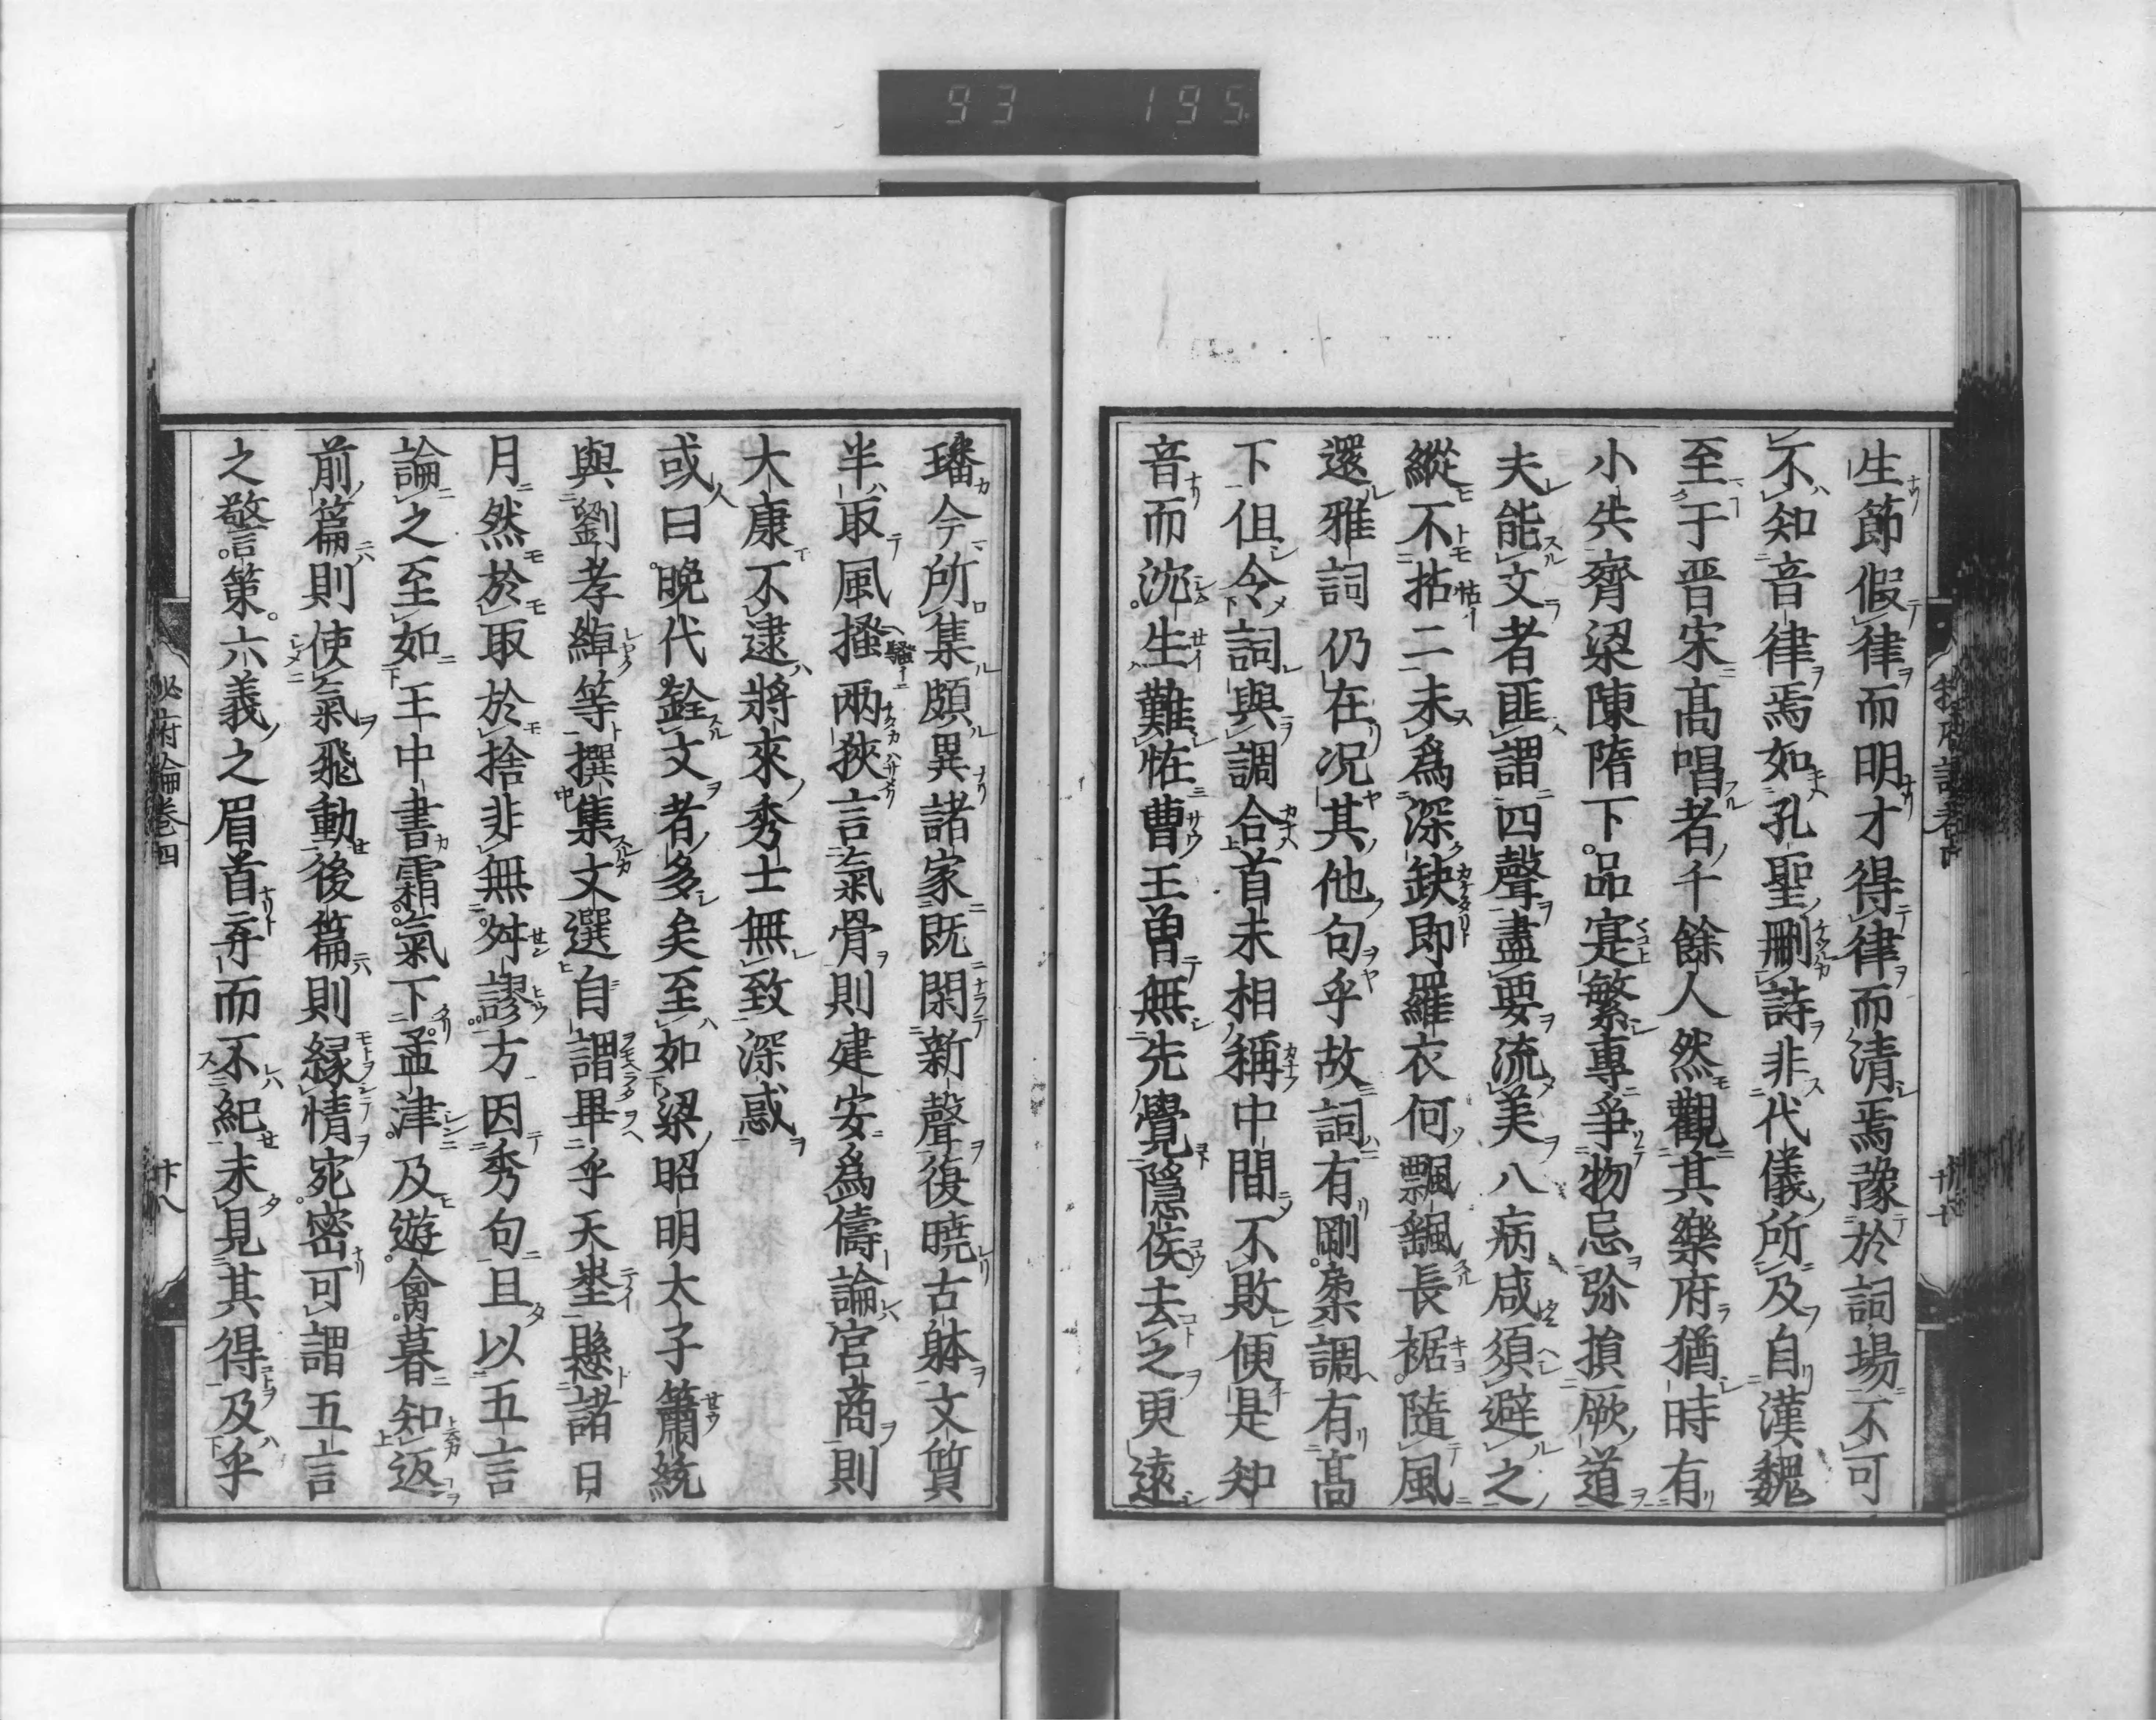 93 195
生節假律而明才得律而清焉豫於詞場不可
不知音律焉如孔聖刪詩非代儀所及自漢魏
至于晋宋高唱者千餘人然觀其樂府猶時有
小失齊梁陳隋下品寔繁專爭物忌弥損厥道
夫能文者匪謂四聲盡要流美八病咸須避之
縱不拈二未為深缺即羅衣何飄飄長裾隨風
還雅詞仍在况其他句乎故詞有剛柔調有高
下但令詞與調合首末相稱中間不敗便是知
音而沈生難恠曹王曽無先覺隠侯去之更遠
璠今所集頗異諸家既閑新聲復暁古躰文質
半取風搔兩狹言氣骨則建安為儔論宮商則
大康不逮將來秀士無致深惑
或曰晚代銓文者多矣至如梁昭明太子蕭統
與劉孝綽等撰集文選自謂畢乎天埊懸諸日
月然於取於捨非無舛謬方因秀句且以五言
論之至如王中書霜氣下孟津及遊禽暮知返
前篇則使氣飛動後篇則縁情宛密可謂五言
之警策六義之眉首弃而不紀未見其得及乎
秘府論卷四 廿八